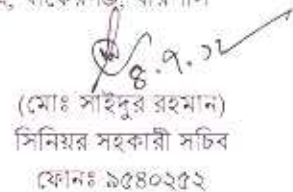 ৪.৭.১২
(মোঃ সাইদুর রহমান)
সিনিয়র সহকারী সচিব
ফোনঃ ৯৫৪০২৫২